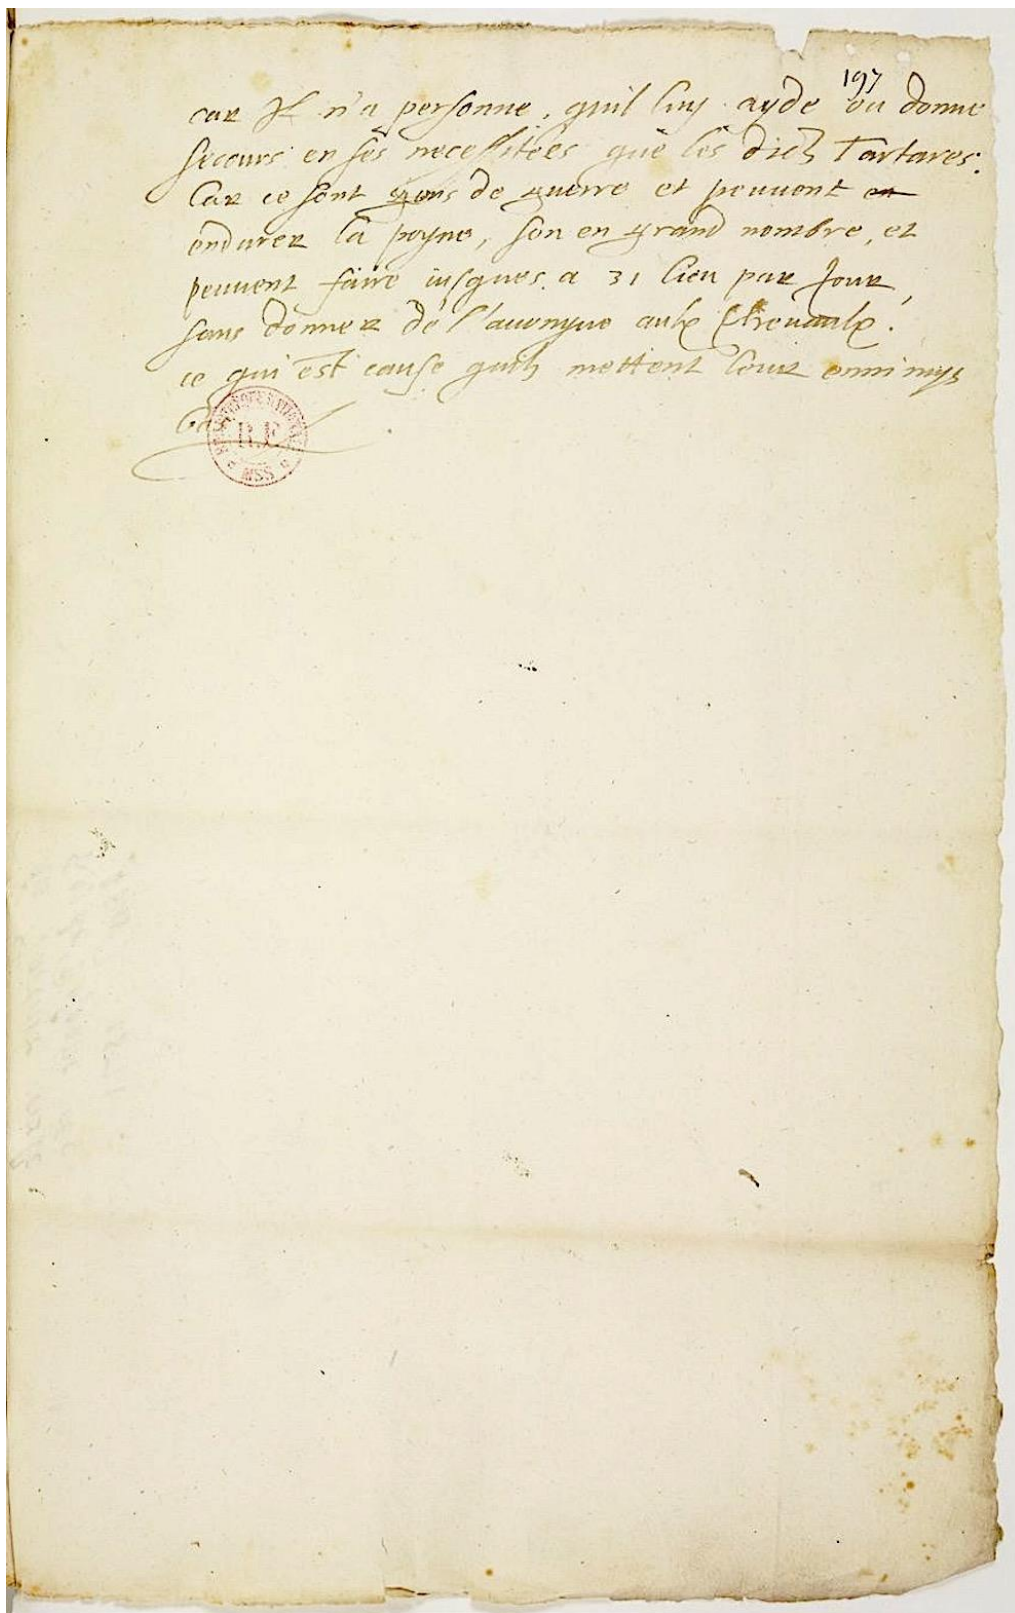 197
car Il n'a personne, quil luy ayde ou donne
secours en ses necessitees que les dictz Tartares.
Car ce sont gens de guerre et peuuent en
endurer la peyne, son en grand nombre, et
peuuent faire iusques a 31 lieu par Jour,
sans donner de l'auongne aulx Cheuaulx.
ce qui est cause quilz mettent leur ennimys
bas
R.F.
MSS